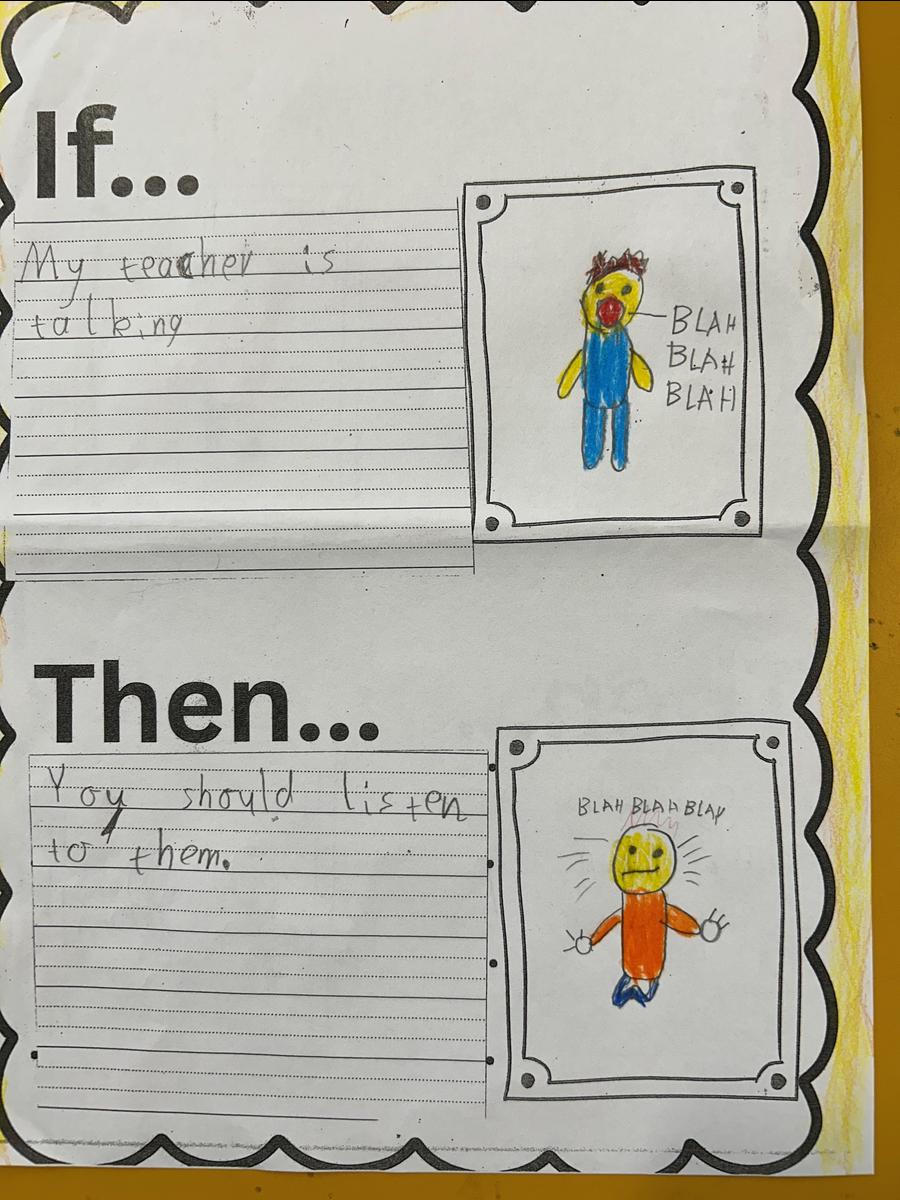 If...
My teacher is
talking
BLAH
BLAH
BLAH
Then...
You should listen
to them.
BLAH BLAH BLAH